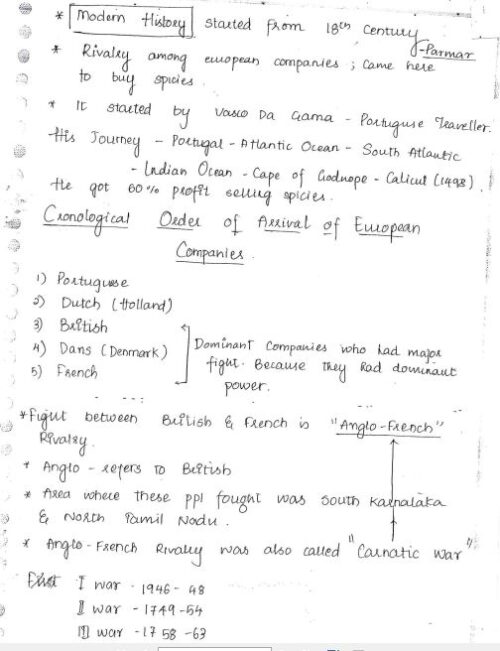 * Modern History started from 18th Century
- Parmar
* Rivalry among european companies ; came here
to buy spicies.
* It started by Vasco Da Gama - Portuguse Traveller.
His Journey - Portugal - Atlantic Ocean - South Atlantic
- Indian Ocean - Cape of Godhope - Calicut (1498).
He got 60% profit selling spicies.
Cronological Order of Arrival of European
Companies.
1) Portuguse
2) Dutch (Holland)
3) British
4) Dans (Denmark)
5) French
Dominant Companies who had major
fight. Because they had dominant
power.
* Fight between British & French is "Anglo-French"
Rivalry.
* Anglo - refers to British
* Area where these ppl fought was South Karnataka
& North Tamil Nadu.
* Anglo-French Rivalry was also called "Carnatic War"
I war - 1946 - 48
II war - 1749 - 54
III war - 1758 - 63